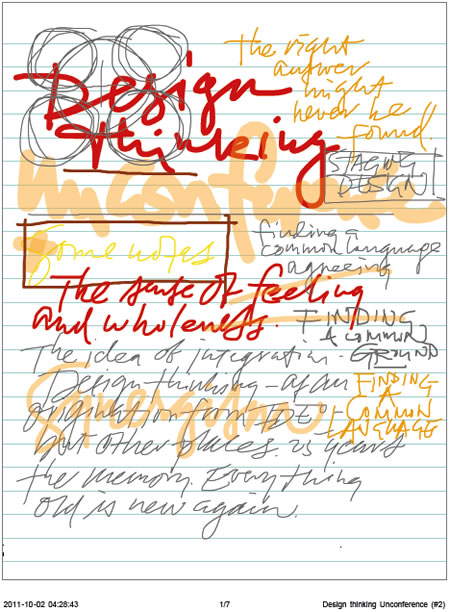 Design
thinking
UnConference
The right
answer
might
never be
found.
STAGING
DESIGN!
Some notes
finding a
common language
agreeing
The sense of feeling
and wholeness.
FINDING
A COMMON
GROUND
The idea of integration -
Design thinking - as an
origination from IDEO -
but other places. 25 years
the memory. Everything
old is new again.
FINDING
A
COMMON
LANGUAGE
2011-10-02 04:28:43 1/7 Design thinking Unconference (#2)